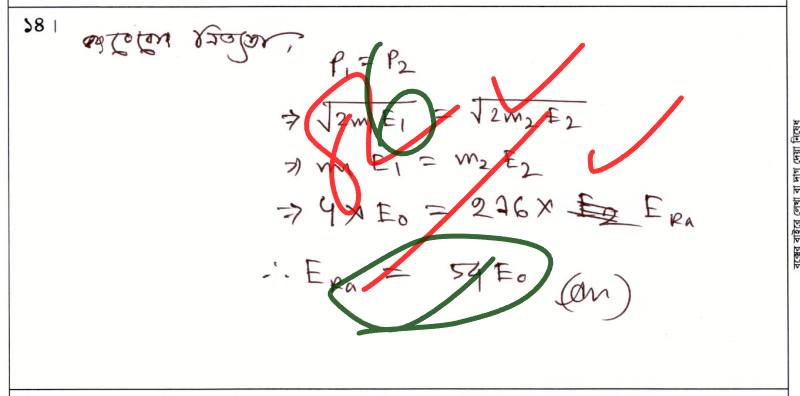 ১৪।
ভরবেগের নিত্যতা,
P₁ = P₂
⇒ √2m₁E₁ = √2m₂E₂
⇒ m₁E₁ = m₂E₂
⇒ 4 × E₀ = 226 × E_Ra
∴ E_Ra = 54 E₀ (Ans)
বক্সের বাইরে লেখা বা দাগ দেয়া নিষেধ